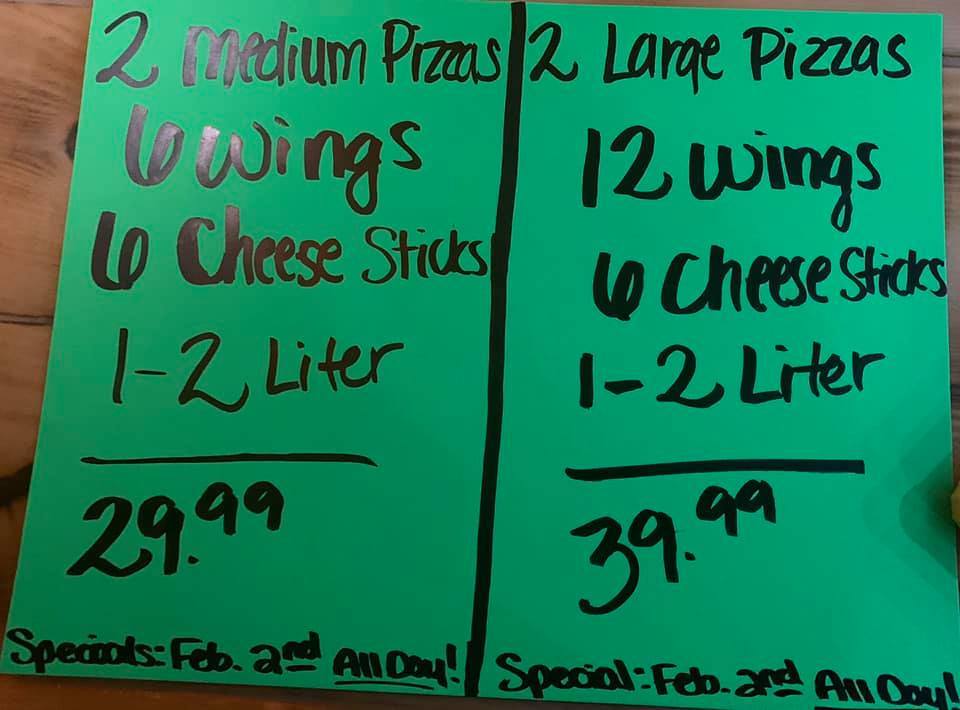 2 Medium Pizzas
6 Wings
6 Cheese Sticks
1-2 Liter
29.99
Specials: Feb. 2nd All Day!
2 Large Pizzas
12 Wings
6 Cheese Sticks
1-2 Liter
39.99
Special: Feb. 2nd All Day!